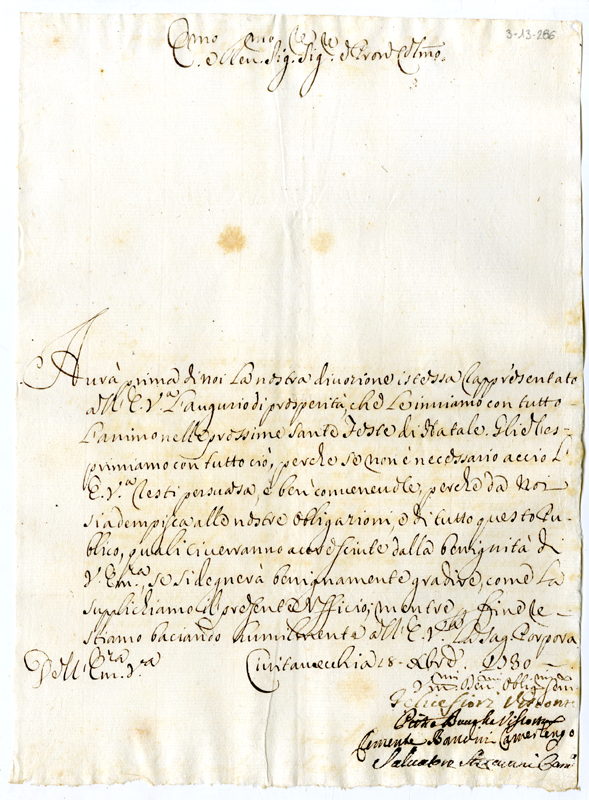 3-13-286
Emo. e Rev. Sig. Sig. e Pron. Colmo.
Aurà prima di noi la nostra diuozione istessa rappresentato
all'E. V.a l'augurio di prosperità, che le inuiamo con tutto
l'animo nelle prossime Sante Feste di Natale. Glielo es-
primiamo con tutto ciò, perche se non è necessario acciò l'
E. V.a resti persuasa, è ben conueneuole, perche da Noi
si adempisca alle nostre obligazioni, e di tutto questo Pu-
blico, quali ci uerranno accresciute dalla benignità di
V. Em.za, se si degnerà benignamente gradire, come la
supplichiamo il presente Vfficio; mentre p. fine re-
stiamo baciando humilmente all'E. V.a la Sag. Porpora
Dell'Em.za V.a Ciuitauecchia 18 Xbre
Obligmi
Pietro Visconte
Clemente Bandini Camerlengo
Saluatore